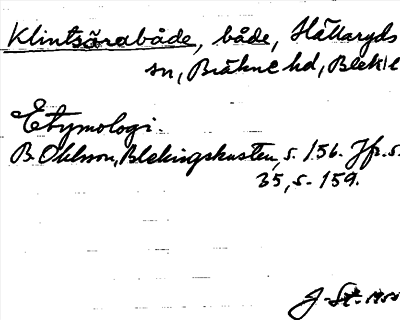 Klintsärabåde, både, Hällaryds
sn, Bräkne hd, Blek. l
Etymologi.
B. Ohlsson, Blekingskusten, s. 156. Jfr. s.
35, s. 159.
J. St.